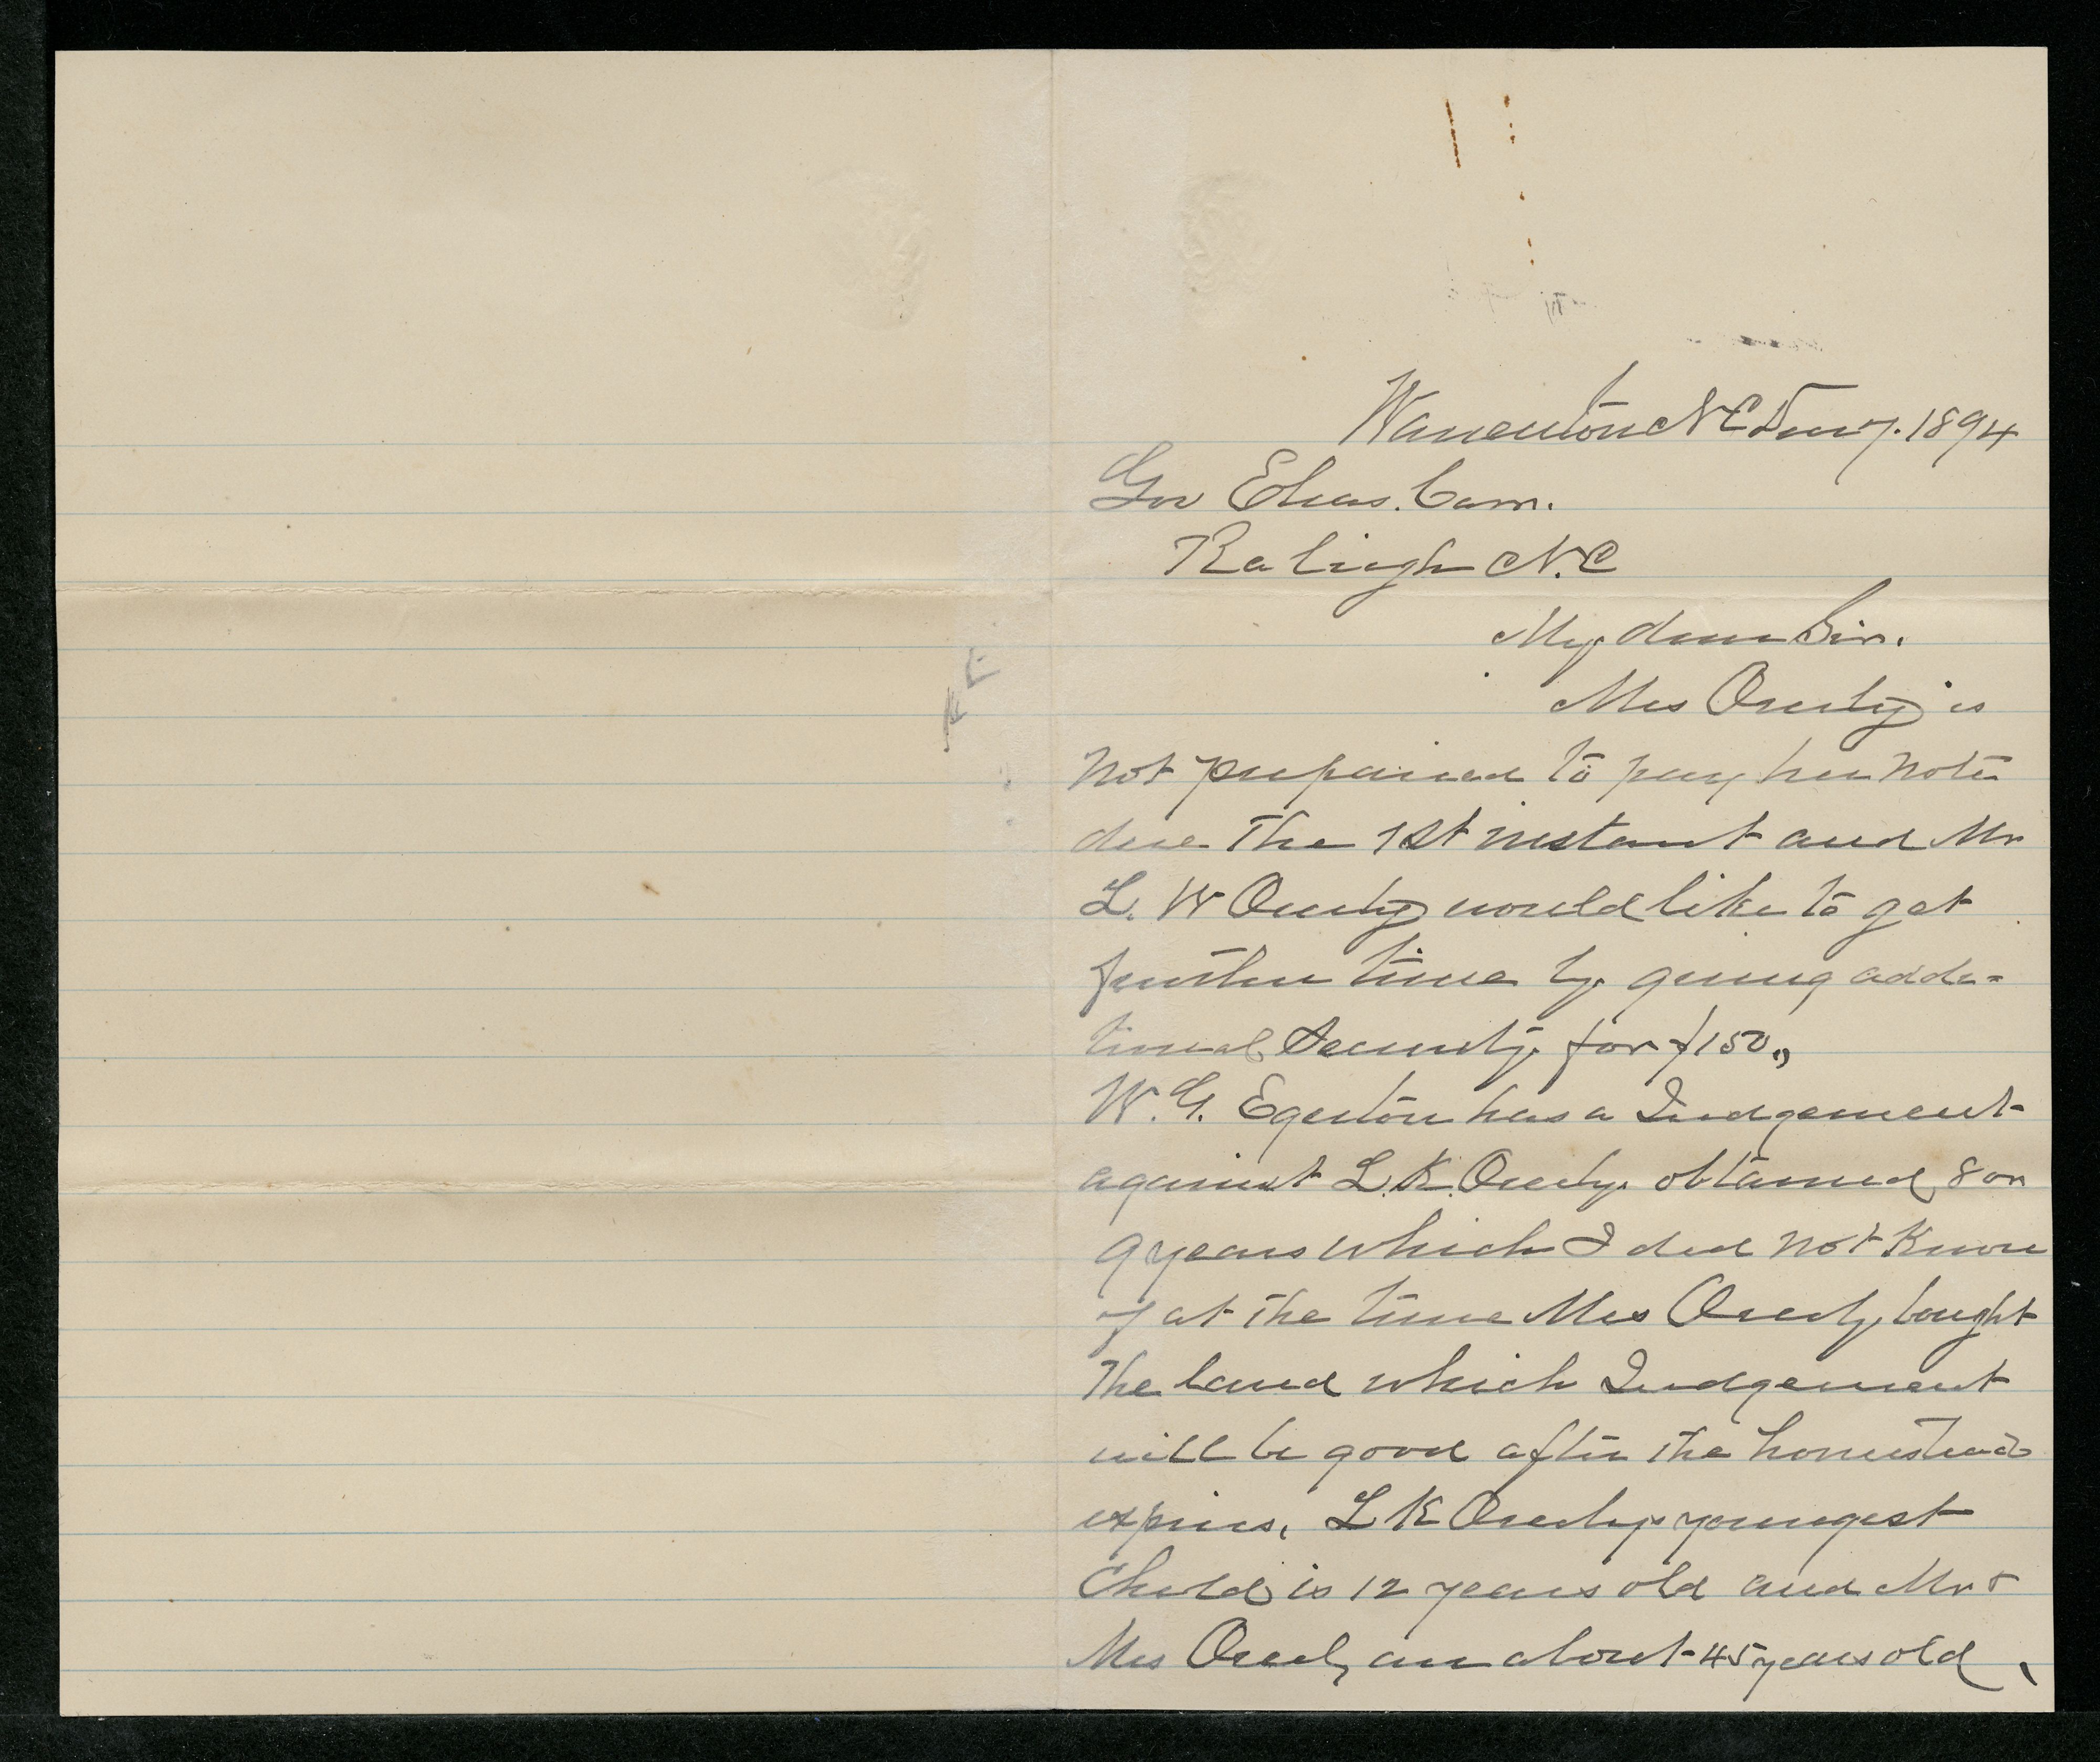 Warrenton N C Dec 7. 1894
Gov Elias. Carr.
Raliegh N.C
My dear Sir.
Mrs Overby is
not prepaired to pay her note
due the 1st instant and Mr
L. W Overby would like to get
further time by giving addi=
tional Security for $150,,
W. G. Egerton has a Judgement
against L. K. Overby obtained 8 or
9 years which I did not Know
of at the time Mrs Overby bought
the land which Judgement
will be good after the homestead
expires. L K Overbys youngest
Child is 12 years old and Mr &
Mrs Overby are about 45 years old